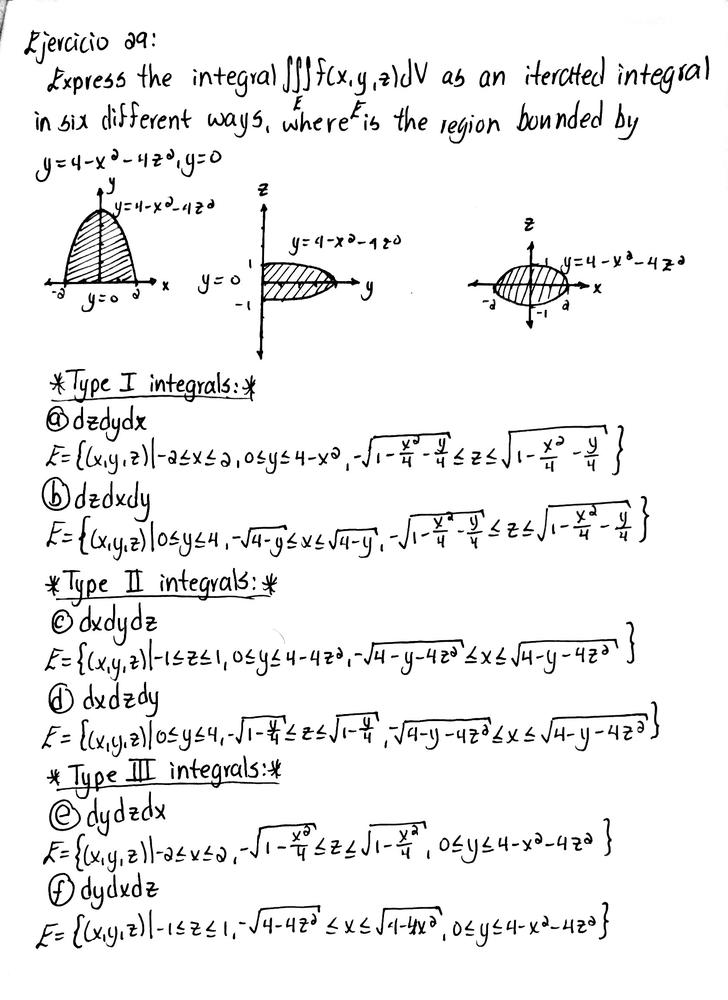 Ejercicio 29:
Express the integral ∭f(x,y,z)dV as an itercted integral
E
in six different ways, where E is the region bounded by
y=4-x²-4z², y=0
y
z
y=4-x²-4z²
z
y=4-x²-4z0
1
y=4-x²-4z²
1
x
y=0
y
x
-2
y=0
2
-1
-2
-1
2
*Type I integrals:*
ⓐ dzdydx
E={(x,y,z)|-2≤x≤2, 0≤y≤4-x², -√(1-x²/4-y/4)≤z≤√(1-x²/4-y/4)}
ⓑ dzdxdy
E={(x,y,z)|0≤y≤4, -√(4-y)≤x≤√(4-y), -√(1-x²/4-y/4)≤z≤√(1-x²/4-y/4)}
*Type II integrals:*
ⓒ dxdydz
E={(x,y,z)|-1≤z≤1, 0≤y≤4-4z², -√(4-y-4z²)≤x≤√(4-y-4z²)}
ⓓ dxdzdy
E={(x,y,z)|0≤y≤4, -√(1-y/4)≤z≤√(1-y/4), -√(4-y-4z²)≤x≤√(4-y-4z²)}
*Type III integrals:*
ⓔ dydzdx
E={(x,y,z)|-2≤x≤2, -√(1-x²/4)≤z≤√(1-x²/4), 0≤y≤4-x²-4z²}
ⓕ dydxdz
E={(x,y,z)|-1≤z≤1, -√(4-4z²)≤x≤√(4-4x²), 0≤y≤4-x²-4z²}